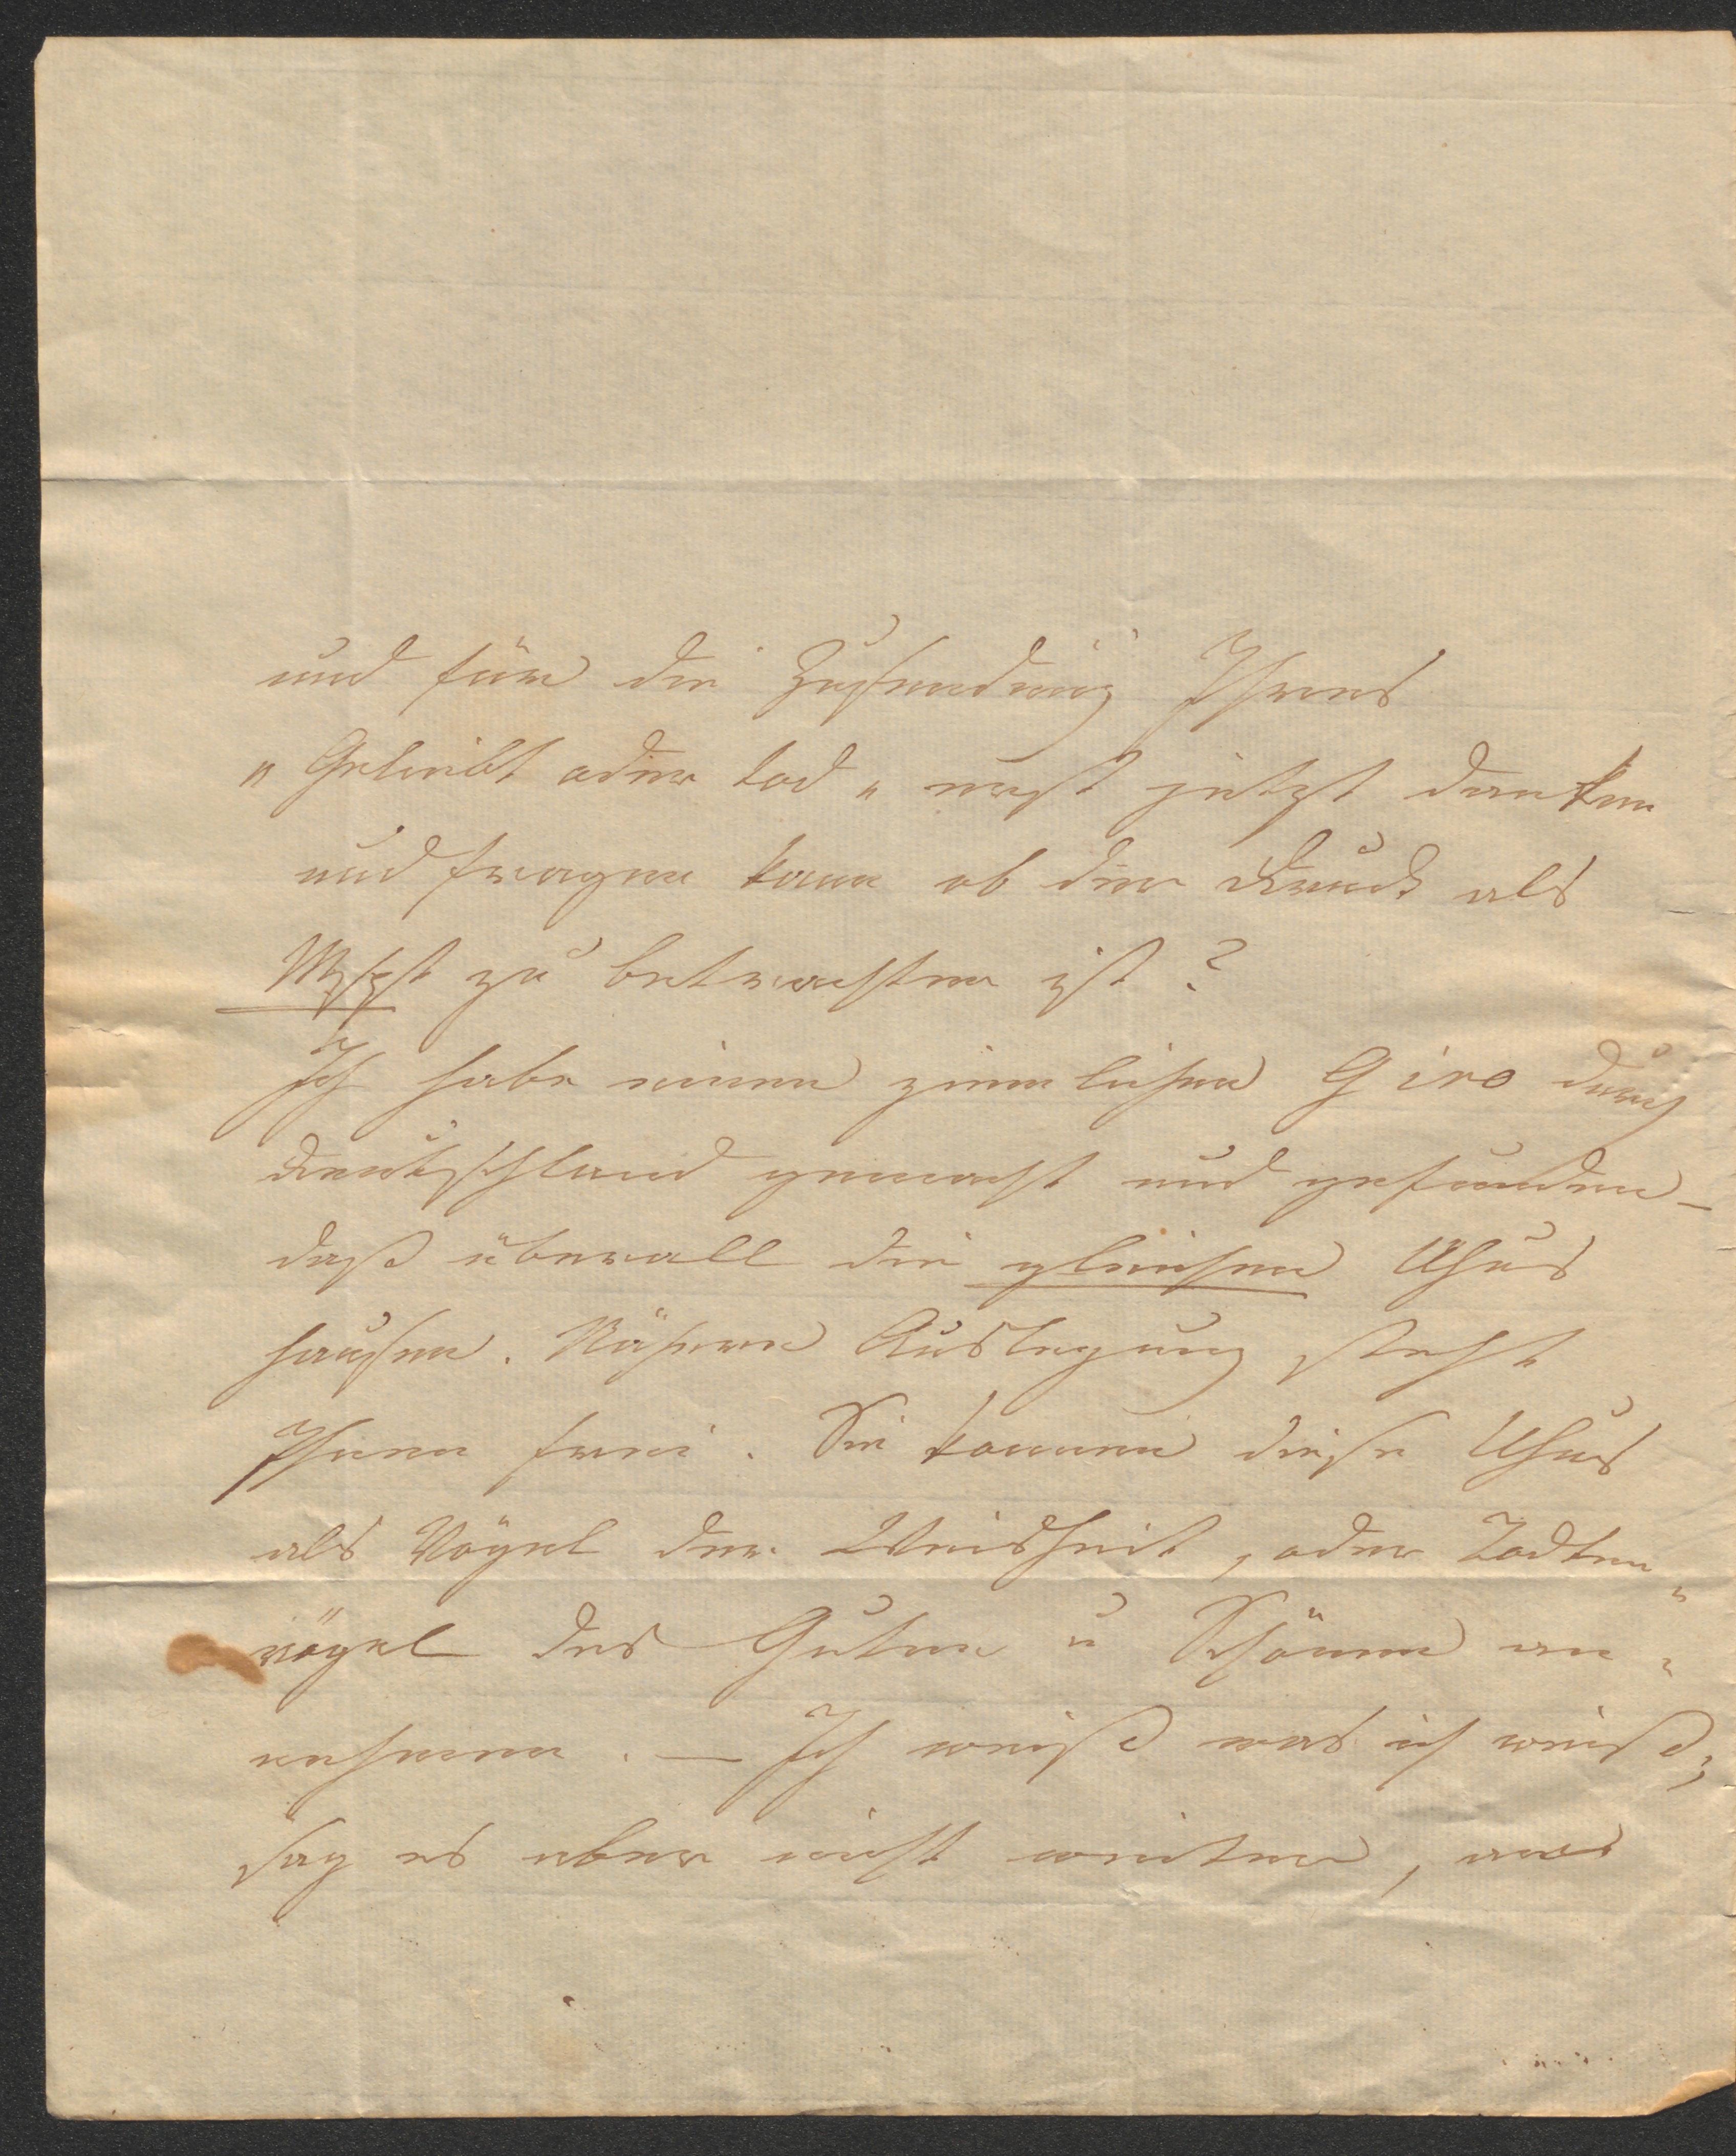 und für die Zusendung Ihres
„Geliebt oder tod„ erst jetzt danken
und fragen kann ob der Druck als
Mspt zu betrachten ist?
Ich habe einen ziemlichen Giro durch
Deutschland gemacht und gefunden –
daß überall die gleichen Uhus
hausen. Nähere Auslegung steht
Ihnen frei. Sie können diese Uhus
als Vögel der Weisheit, oder Todten„
vögel des Guten u Schönen an„
nehmen. – Ich weiß was ich weiß,
sag es aber nicht weiter, was